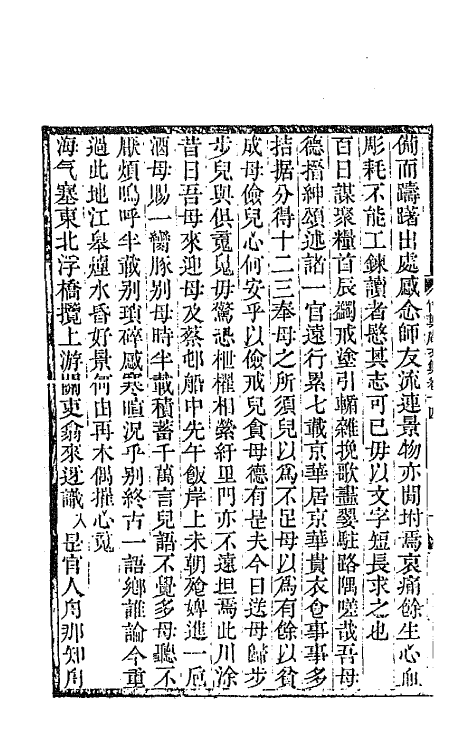 備而躊躇出處感念師友流連景物亦間坿焉哀痛餘生心血
彫耗不能工鍊讀者愍其志可已毋以文字短長求之也
百日謀裹糧首辰蠲戒塗引輀雜挽歌畫翣駐路隅嗟哉吾母
德搢紳頌述諂一官遠行纍七載京華居京華貴衣食事事多
拮据分得十二三奉母之所須兒以爲不足母以爲有餘以貧
成母儉兒心何安乎以儉戒兒貪母德有是夫今日送母歸步
步兒與俱冤鬼毋驚恐枻櫂相縈紆里門亦不遠坦焉此川涂
昔日吾母來迎母及蔡邨船中先午飯岸上未朝飧婢進一卮
酒母賜一臠豚別母時半載積蓄千萬言兒語不覺多母聽不
厭煩嗚呼半載別瑣碎感寒暄況乎別終古一語鄉誰論今重
過此地江皋煙水昏好景何由再木偶摧心寃
海气塞東北浮橋攬上游關吏翁來迓識人是官人舟那知舟